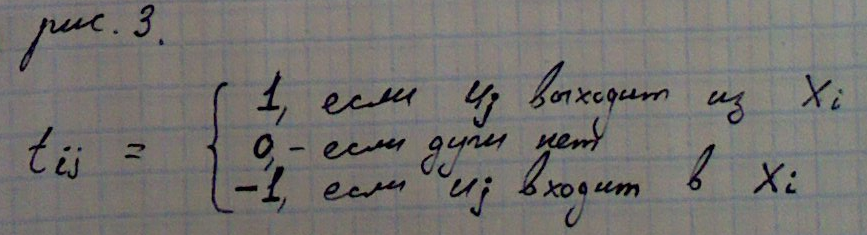 рис. 3.
1, если uj выходит из Xi
tij = { 0, - если дуги нет
-1, если uj входит в Xi